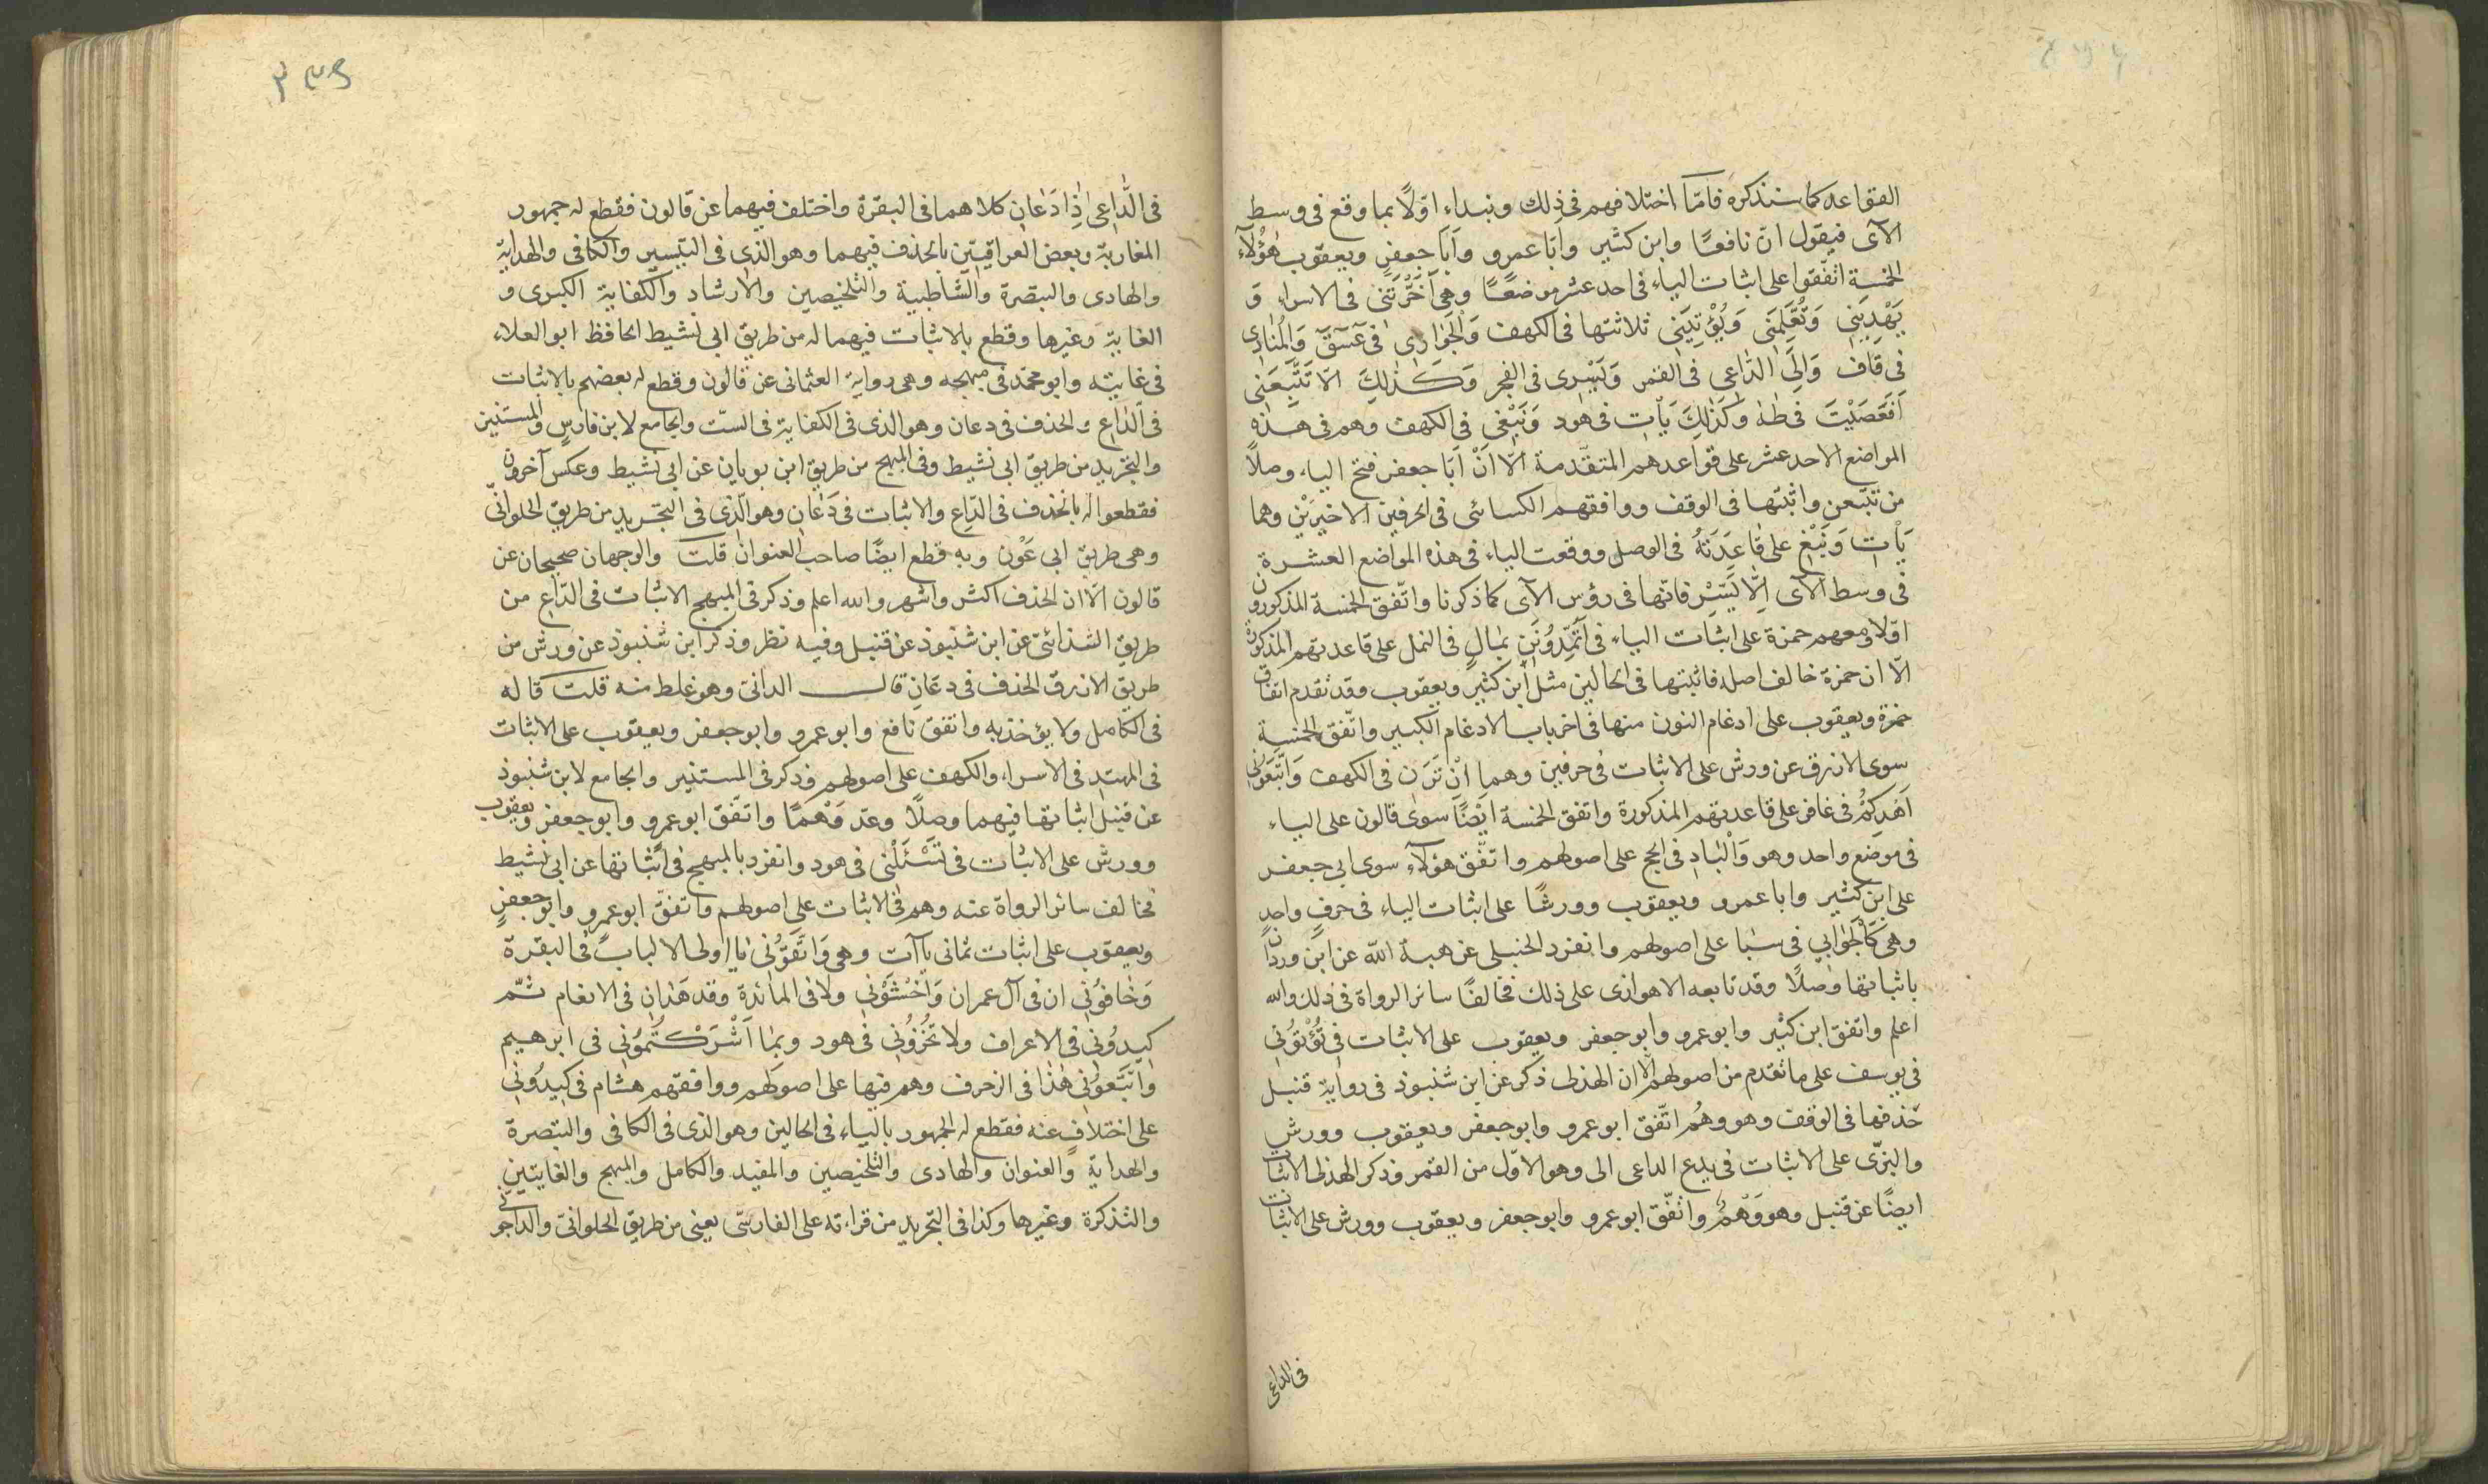 القواعد كما سنذكره فامّا اختلافهم فى ذلك ونبداء اوّلاً بما وقع فى وسط
الآى فيقول انّ نافعًا وابن كثير وابَا عمرو وأبَا جعفرٍ ويعقوب هٰؤُلآءِ
الخمسة اتّفقوا على اثبات الياء فى احد عشر موضعًا وهى اَخَّرْتَنى فى الاسراءِ وَ
يَهْدِيَنِى وَتُعَلِّمَنى وَيُؤْتِيَنى ثلاثتها فى الكهف وَالْجَوَارِى فى عٓسٓقٓ وَالْمُنَادِى
فى قاف وَاِلىَ الدّاعى فى القمر وَيَسْرِى فى الفجر وَكَذٰلِكَ الّا تَتَّبِعَنى
اَفَعَصَيْتَ فى طٰهٰ وكَذٰلِكَ يَأتِ فى هود وَنَبْغى فى الكهف وهم فى هذه
المواضع الاحد عشر على قواعدهم المتقدّمة الّا اَنّ اَبَا جعفر فتح الياء وصلاً
من تتبّعن واثبتها فى الوقف ووافقهم الكسائى فى الحرفين الاخيرَيْن وهما
يَأتِ وَنَبْغِ على قاعِدَتهُ فى الوصل ووقعت الياء فى هذه المواضع العشرة
فى وسط الآى اِلّا يَسْرِ فانّها فى رؤس الآى كما ذكرنا واتّفق الخمسة المذكورون
اوّلا ومعهم حمزة على اثبات الياء فى اَتُمِدُّونَنِ بمٰالٍ فى النمل على قاعدتهم المذكورة
الّا ان حمزة خالف اصله فاثبتها فى الحالين مثل ابن كثير ويعقوب وقد تقدم اتفاق
حمزة ويعقوب على ادغام النون منها فى اخر باب الادغام الكبير واتّفق الخمسة
سوى الازرق عن ورش على الاثبات فى حرفين وهما اِنْ تَرَنِ فى الكهف وَاتَّبِعُونِى
اَهْدِكُمْ فى غافر على قاعدتهم المذكورة واتفق الخمسة ايْضًا سوى قالون على الياء
فى موضع واحد وهو وَالْبَادِ فى الحج على اصولهم واتفق هؤلآء سوى ابى جعفر
على ابن كثير وابا عمرو ويعقوب وورشًا على اثبات الياء فى حرفٍ واحدٍ
وهى كَالْجَوَابى فى سَبا على اصولهم وانفرد الحنبلى عن هبة اللّه عن ابن وردان
باثباتها وصلًا وقد تابعه الاهوازى على ذلك فخالفا سائر الرواة فى ذلك والله
اعلم واتفق ابن كثير وابو عمرو وابو جعفر ويعقوب على الاثبات فى تُؤْتُونِى
فى يوسف على ما تقدم من اصولهم الّا ان الهذلى ذكر عن ابن شنبوذ فى رواية قنبل
حذفها فى الوقف وهو وهْمُ اتّفق ابو عمرو وابو جعفر ويعقوب وورش
والبزّى على الاثبات فى يدع الداعى الى وهو الاوّل من القمر وذكر الهذلى الاثبات
ايضًا عن قنبل وهو وَهْمٌ واتّفق ابو عمرو وابو جعفر ويعقوب وورش على الاثبات
فى الداعى
فى الدَّاعِى اِذٰا دَعٰانِ كلاهما فى البقرة واختلف فيهما عن قالون فقطع له جمهور
المغاربة وبعض العراقيّين بالحذف فيهما وهو الذى فى التيسير والكافى والهداية
والهادى والتبصرة والشّاطبية والتلخيصين والارشاد والكفاية الكبرى و
الغاية وغيرها وقطع بالاثبات فيهما له من طريق ابى نشيط الحافظ ابو العلاء
فى غايته وابو محمّد فى مبهجه وهى رواية العثمانى عن قالون وقطع له بعضهم بالاثبات
فى الدّاعِ والحذف فى دعان وهو الذى فى الكفاية فى السّت والجامع لابن فارسٍ والمستنير
والتجريد من طريق ابى نشيط وفى المبهج من طريق ابن بويان عن ابى نشيط وعكس آخرون
فقطعوا له بالحذف فى الدّاعِ والاثبات فى دَعَانِ وهو الّذى فى التجريد من طريق الحلوانىّ
وهى طريق ابى عَوْن وبه قطع ايضًا صاحب العنوان قلت والوجهان صحيحان عن
قالون الّا ان الحذف اكثر واشهر والله اعلم وذكر فى المبهج الاثبات فى الدّاعِ من
طريق الشذائىّ عن ابن شنبوذ عن قنبل وفيه نظر وذكر ابن شنبوذ عن ورش من
طريق الازرق الحذف فى دعَانِ قال الدانىّ وهو غلط منه قلت قاله
فى الكامل ولا يؤخذ به واتفق نافع وابو عمرو وابو جعفر ويعقوب على الاثبات
فى المهتدِ فى الاسراء والكهف على اصولهم وذكر فى المستنير والجامع لابن شنبوذ
عن قنبل اثباتها فيهما وصلًا وعدّ وَهْمًا واتّفق ابو عمرو وابو جعفر ويعقوب
وورش على الاثبات فى تَسْئَلْنى فى هود وانفرد بالمبهج فى اثباتها عن ابى نشيط
فخالف سائر الرواة عنه وهم فى الاثبات على اصولهم واتفق ابو عمرو وابو جعفرٍ
ويعقوب على اثبات ثمانى ياآت وهى وَاتَّقُونى يا اولى الالباب فى البقرة
وَخٰافونِى ان فى آل عمران وَاخْشَوْنِى ولا فى المائدة وقد هَدٰانِ فى الانعام ثمّ
كيدُونى فى الاعراف ولا تُخْزُونى فى هود وبمٰا اَشْرَكْتُمُونى فى ابرهيم
واتَّبِعُونى هٰذا فى الزخرف وهم فيها على اصولهم ووافقهم هشام فى كيدُونى
على اختلافٍ عنه فقطع له الجمهور بالياء فى الحالين وهو الذى فى الكافى والتبصرة
والهداية والعنوان والهادى والتلخيصين والمفيد والكامل والمبهج والغايتين
والتذكرة وغيرها وكذا فى التجريد من قراءته على الفارسّى يعنى من طريق الحلوانىّ والداجونى